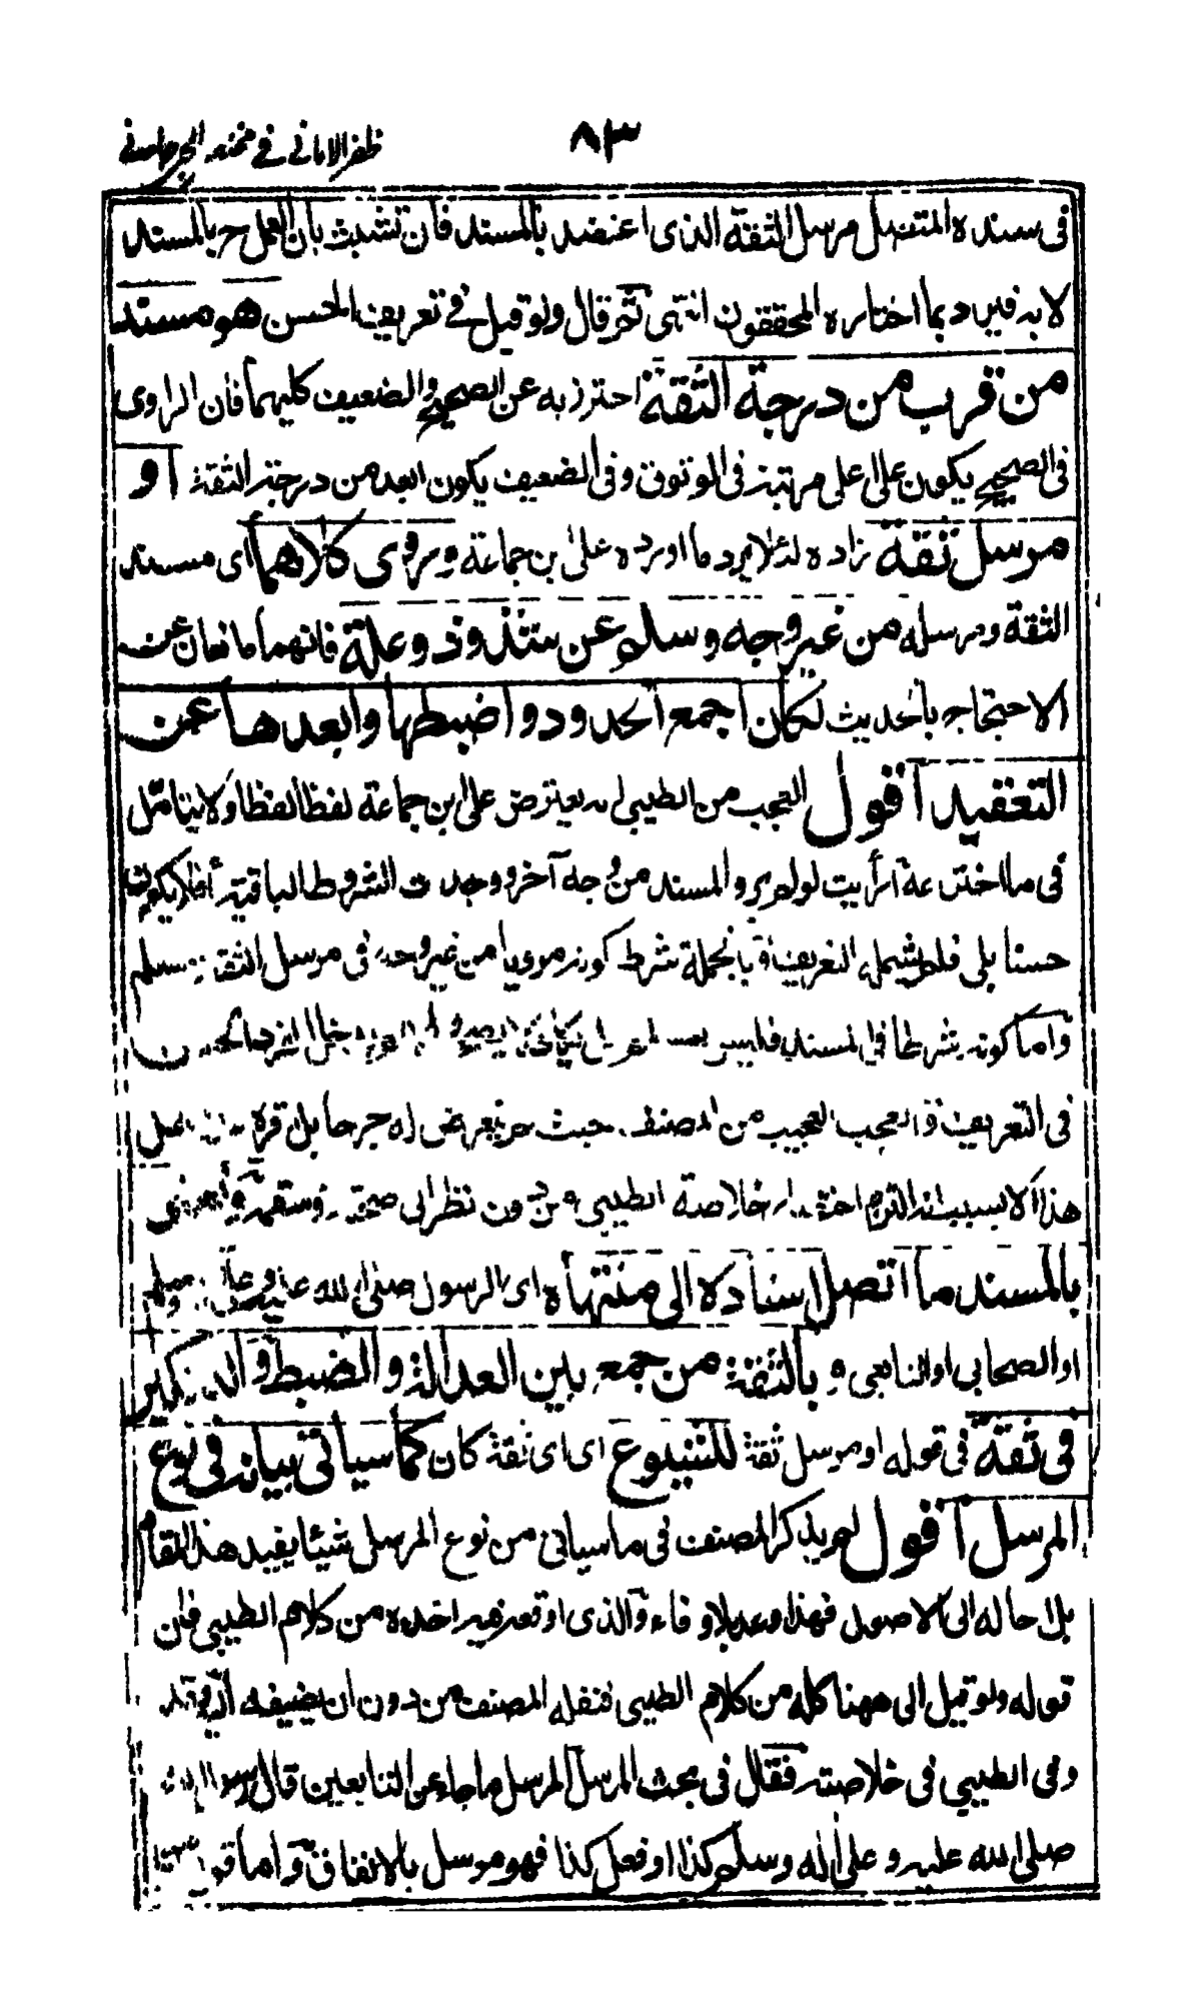 ٨٣
ظفر الامانى فى مختصر الجرجانى
فى سنده المتصل مرسل الثقة الذى اعتضد بالمسند فان تشبث بان العمل ح بالمسند
لا به فيرد بما اختاره المحققون انتهى ثم قال ولو قيل فى تعريف الحسن هو مسند
من قرب من درجة الثقة احترز به عن الصحيح والضعيف كليهما فان الراوى
فى الصحيح يكون على اعلى مرتبة فى الوثوق وفى الضعيف يكون ابعد من درجة الثقة او
مرسل ثقة زاده لئلا يرد ما اورده على بن جماعة وروى كلاهما اى مسند
الثقة ومرسله من غير وجه وسلم عن شذوذ وعلة فانهما مانعان عن
الاحتجاج بالحديث لكان اجمع الحدود واضبطها وابعدها عن
التعقيد اقول العجب من الطيبى انه يعترض على ابن جماعة لفظا لفظا ولا يتامل
فى ما اخترعه أرأيت لو لم يرو المسند من وجه آخر ووجدت الشروط الباقية أفلا يكون
حسنا بلى فلم يشمله التعريف وبالجملة شرط كونه مرويا من غير وجه فى مرسل الثقة مسلم
واما كونه شرطا فى المسند فليس بمسلم
فى التعريف والعجب العجيب من المصنف حيث لم يتعرض له جرحا بل قرره
هذا الا بسبب انه التزم اختصار خلاصة الطيبى من دون نظر الى صحته وسقمه
بالمسند ما اتصل اسناده الى منتهاه اى الرسول صلى الله عليه وعلى وسلم
او الصحابى او التابعى و بالثقة من جمع بين العدالة والضبط والتنكير
فى ثقة فى قوله او مرسل ثقة للشيوع اى اى ثقة كان كما سيأتى بيانه فى نوع
المرسل اقول لم يذكر المصنف فى ما سياتى من نوع المرسل شيئا يفيد هذا المقام
بل احاله الى الاصول فهذا وعد بلا وفاء والذى اوقعه فيه اخذه من كلام الطيبى فان
قوله ولو قيل الى ههنا كله من كلام الطيبى فنقله المصنف من دون ان يضيفه اليه وقد
وفى الطيبى فى خلاصته فقال فى بحث المرسل المرسل ما جاء عن التابعين قال رسول الله
صلى الله عليه وعلى آله وسلم كذا او فعل كذا فهو مرسل بالاتفاق واما